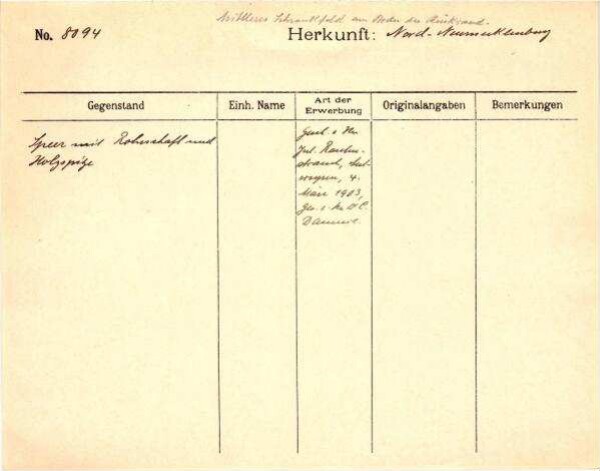 Mittleres Schrankfeld am Boden der Rückwand.
No. 8094 Herkunft: Nord-Neumecklenburg
Gegenstand Einh. Name Art der Erwerbung Originalangaben Bemerkungen
Speer mit Rohrschaft und
Holzspitze
v. Hr.
Jul.
4.
März 1903,